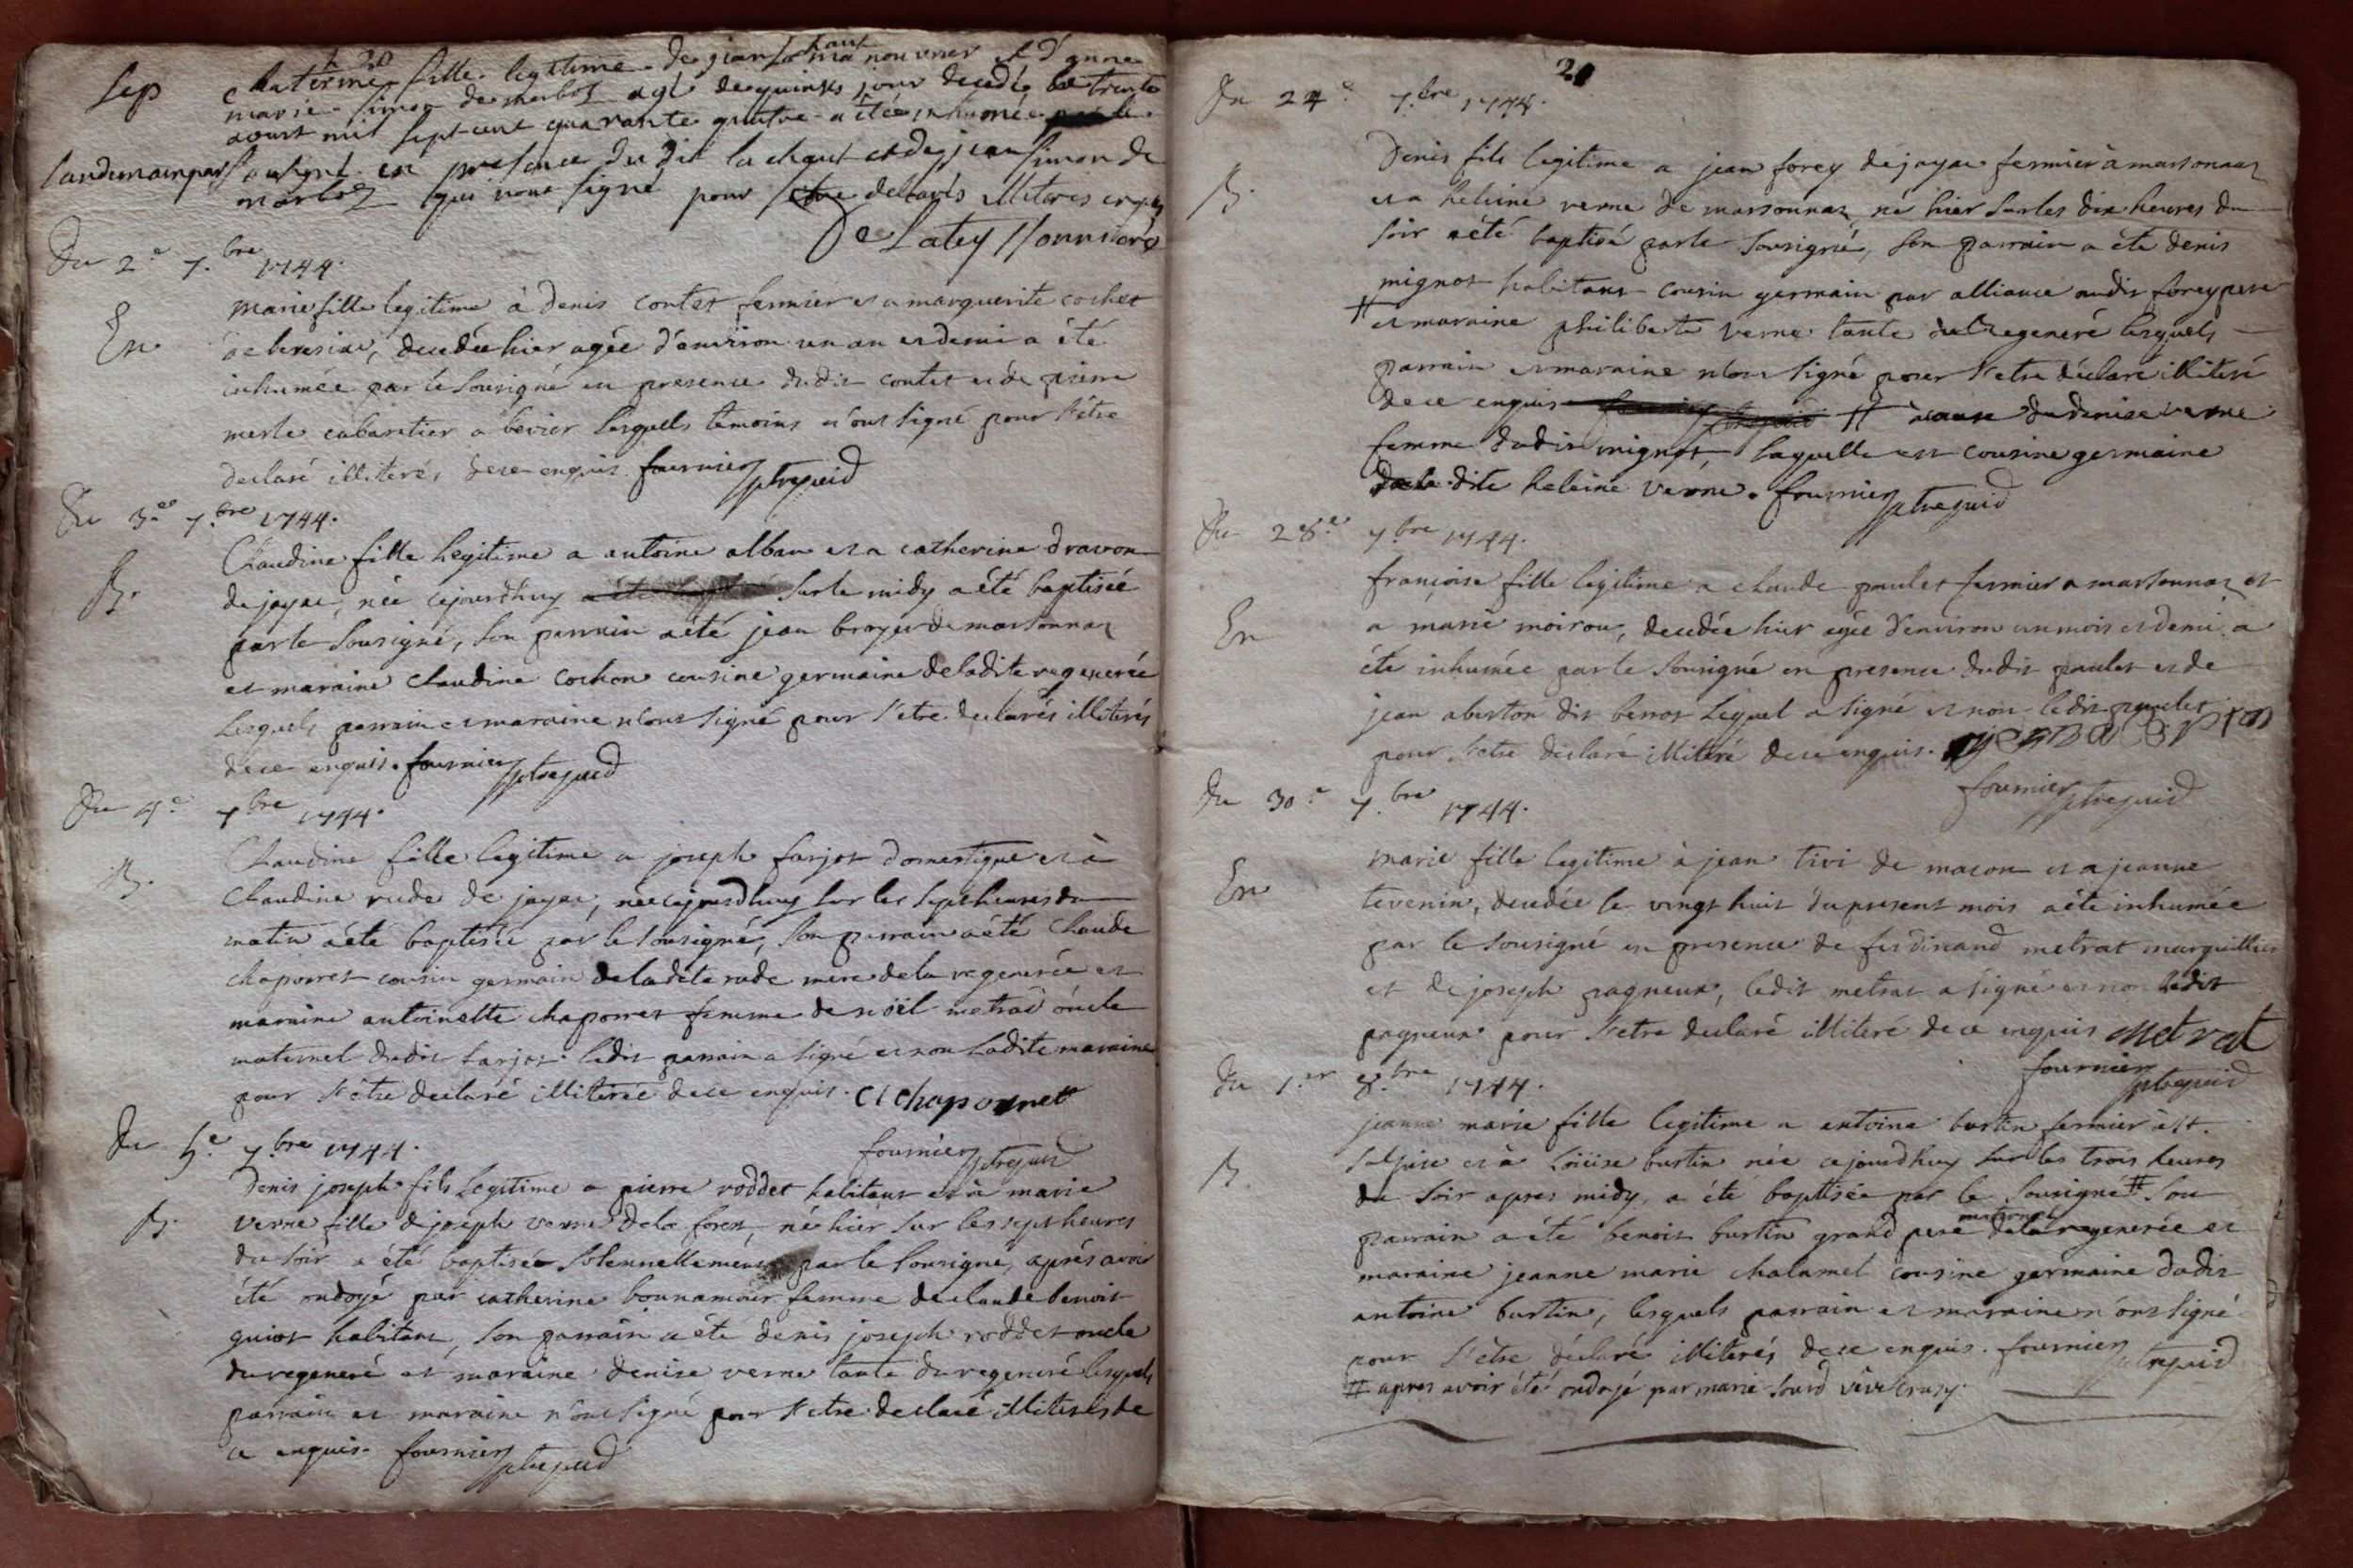 Sep
Catherine fille legitime de jean la chaut manouvrier et d'anne
marie simon de marboz agé de quinze jour decedé le trente
aoust mil sept cent quarante quattre a étée inhumée
landemain par soussigné en presence du dit la chaut et de jean simon de
marboz qui n'ont signé pour être declarés illiteres enquis
De Latey
Du 2e 7.bre 1744.
En
marie fille legitime à denis contet fermier et a marguerite cochet
decedée hier agée d'environ un an et demi a été
inhumée par le sousigné en presence dudit contet et de pierre
merle cabaretier a bevier lesquels temoins n'ont signé pour s'être
declaré illiterés, de ce enquis. fournier
Du 3e 7.bre 1744.
B.
Claudine fille legitime a antoine alban et a catherine dravon
de jayac, née cejourdhuy sur le midy a été baptisée
par le sousigné, son parrain a été jean broyer de marsonnaz
et maraine claudine cochon cousine germaine de ladite regenerée
lesquels parrain et maraine n'ont signé pour s'etre declarés illiterés
de ce enquis. fournier
Du 4e 7bre 1744.
B.
Claudine fille legitime a joseph farjot domestique et à
Claudine rude de jayac, née cejourdhuy sur les sept heures du
matin a été baptisée par le sousigné, son parrain a été Claude
chaponet cousin germain de ladite rude mere de la regenerée et
maraine antoinette chaponet femme de noël metrat oncle
maternel dudit farjot. ledit parrain a signé et non ladite maraine
pour s'être declaré illiterée de ce enquis. Cl chaponnet
fournier
Du 5e 7.bre 1744.
B.
denis joseph fils legitime a pierre roddet habitant et à marie
verne fille de joseph verne de la forest, né hier sur les sept heures
du soir a été baptisée solennellement par le sousigné, aprés avoir
été ondoyé par catherine bonnamour femme de claude benoit
guiot habitant, son parrain a été denis joseph roddet oncle
du regeneré et maraine denise verne tante du regeneré lesquels
parrain et maraine n'ont signé pour s'etre declaré illiterés de
ce enquis. fournier
2
Du 24e 7.bre 1744.
B.
Denis fils legitime a jean forey de jayac fermier à marsonnaz
et a heleine verne de marsonnaz né hier sur les dix heures du
soir a été baptisé par le sousigné, son parrain a été denis
mignot habitant cousin germain par alliance audit forey pere
# et maraine philiberte verne tante du regeneré lesquels
parrain et maraine n'ont signé pour s'etre déclaré illiteré
de ce enquis # a cause de denise verne
femme dudit mignot, laquelle est cousine germaine
de la dite heleine verne. fournier
Du 28e 7bre 1744.
En
françoise fille legitime a claude poulet fermier a marsonnaz et
a marie moirou, decedée hier agée d'environ un mois et demi a
été inhumée par le sousigné en presence dudit poulet et de
jean aberton dit benot lequel a signé et non ledit poulet
pour s'etre déclaré illiteré de ce enquis.
fournier
Du 30e 7.bre 1744.
En
Marie fille legitime à jean tivi de macon et a jeanne
tevenin, decedée le vingt huit du present mois a été inhumée
par le sousigné en presence de ferdinand metrat marguillier
et de joseph pagneux, ledit metrat a signé et non ledit
pagneux pour s'etre declaré illiteré de ce enquis Metrat
fournier
Du 1.er 8.bre 1744.
B.
jeanne marie fille legitime a antoine burtin fermier à st.
sulpice et à loüise burtin née cejourdhuy sur les trois heures
du soir apres midy, a été baptisée par le sousigné # son
parrain a été benoit burtin grand pere maternel de la regenerée et
maraine jeanne marie chalamel cousine germaine dudit
antoine burtin, lesquels parrain et maraine n'ont signé
pour s'etre déclaré illiterés de ce enquis. fournier
# apres avoir été ondoyé par marie sourd